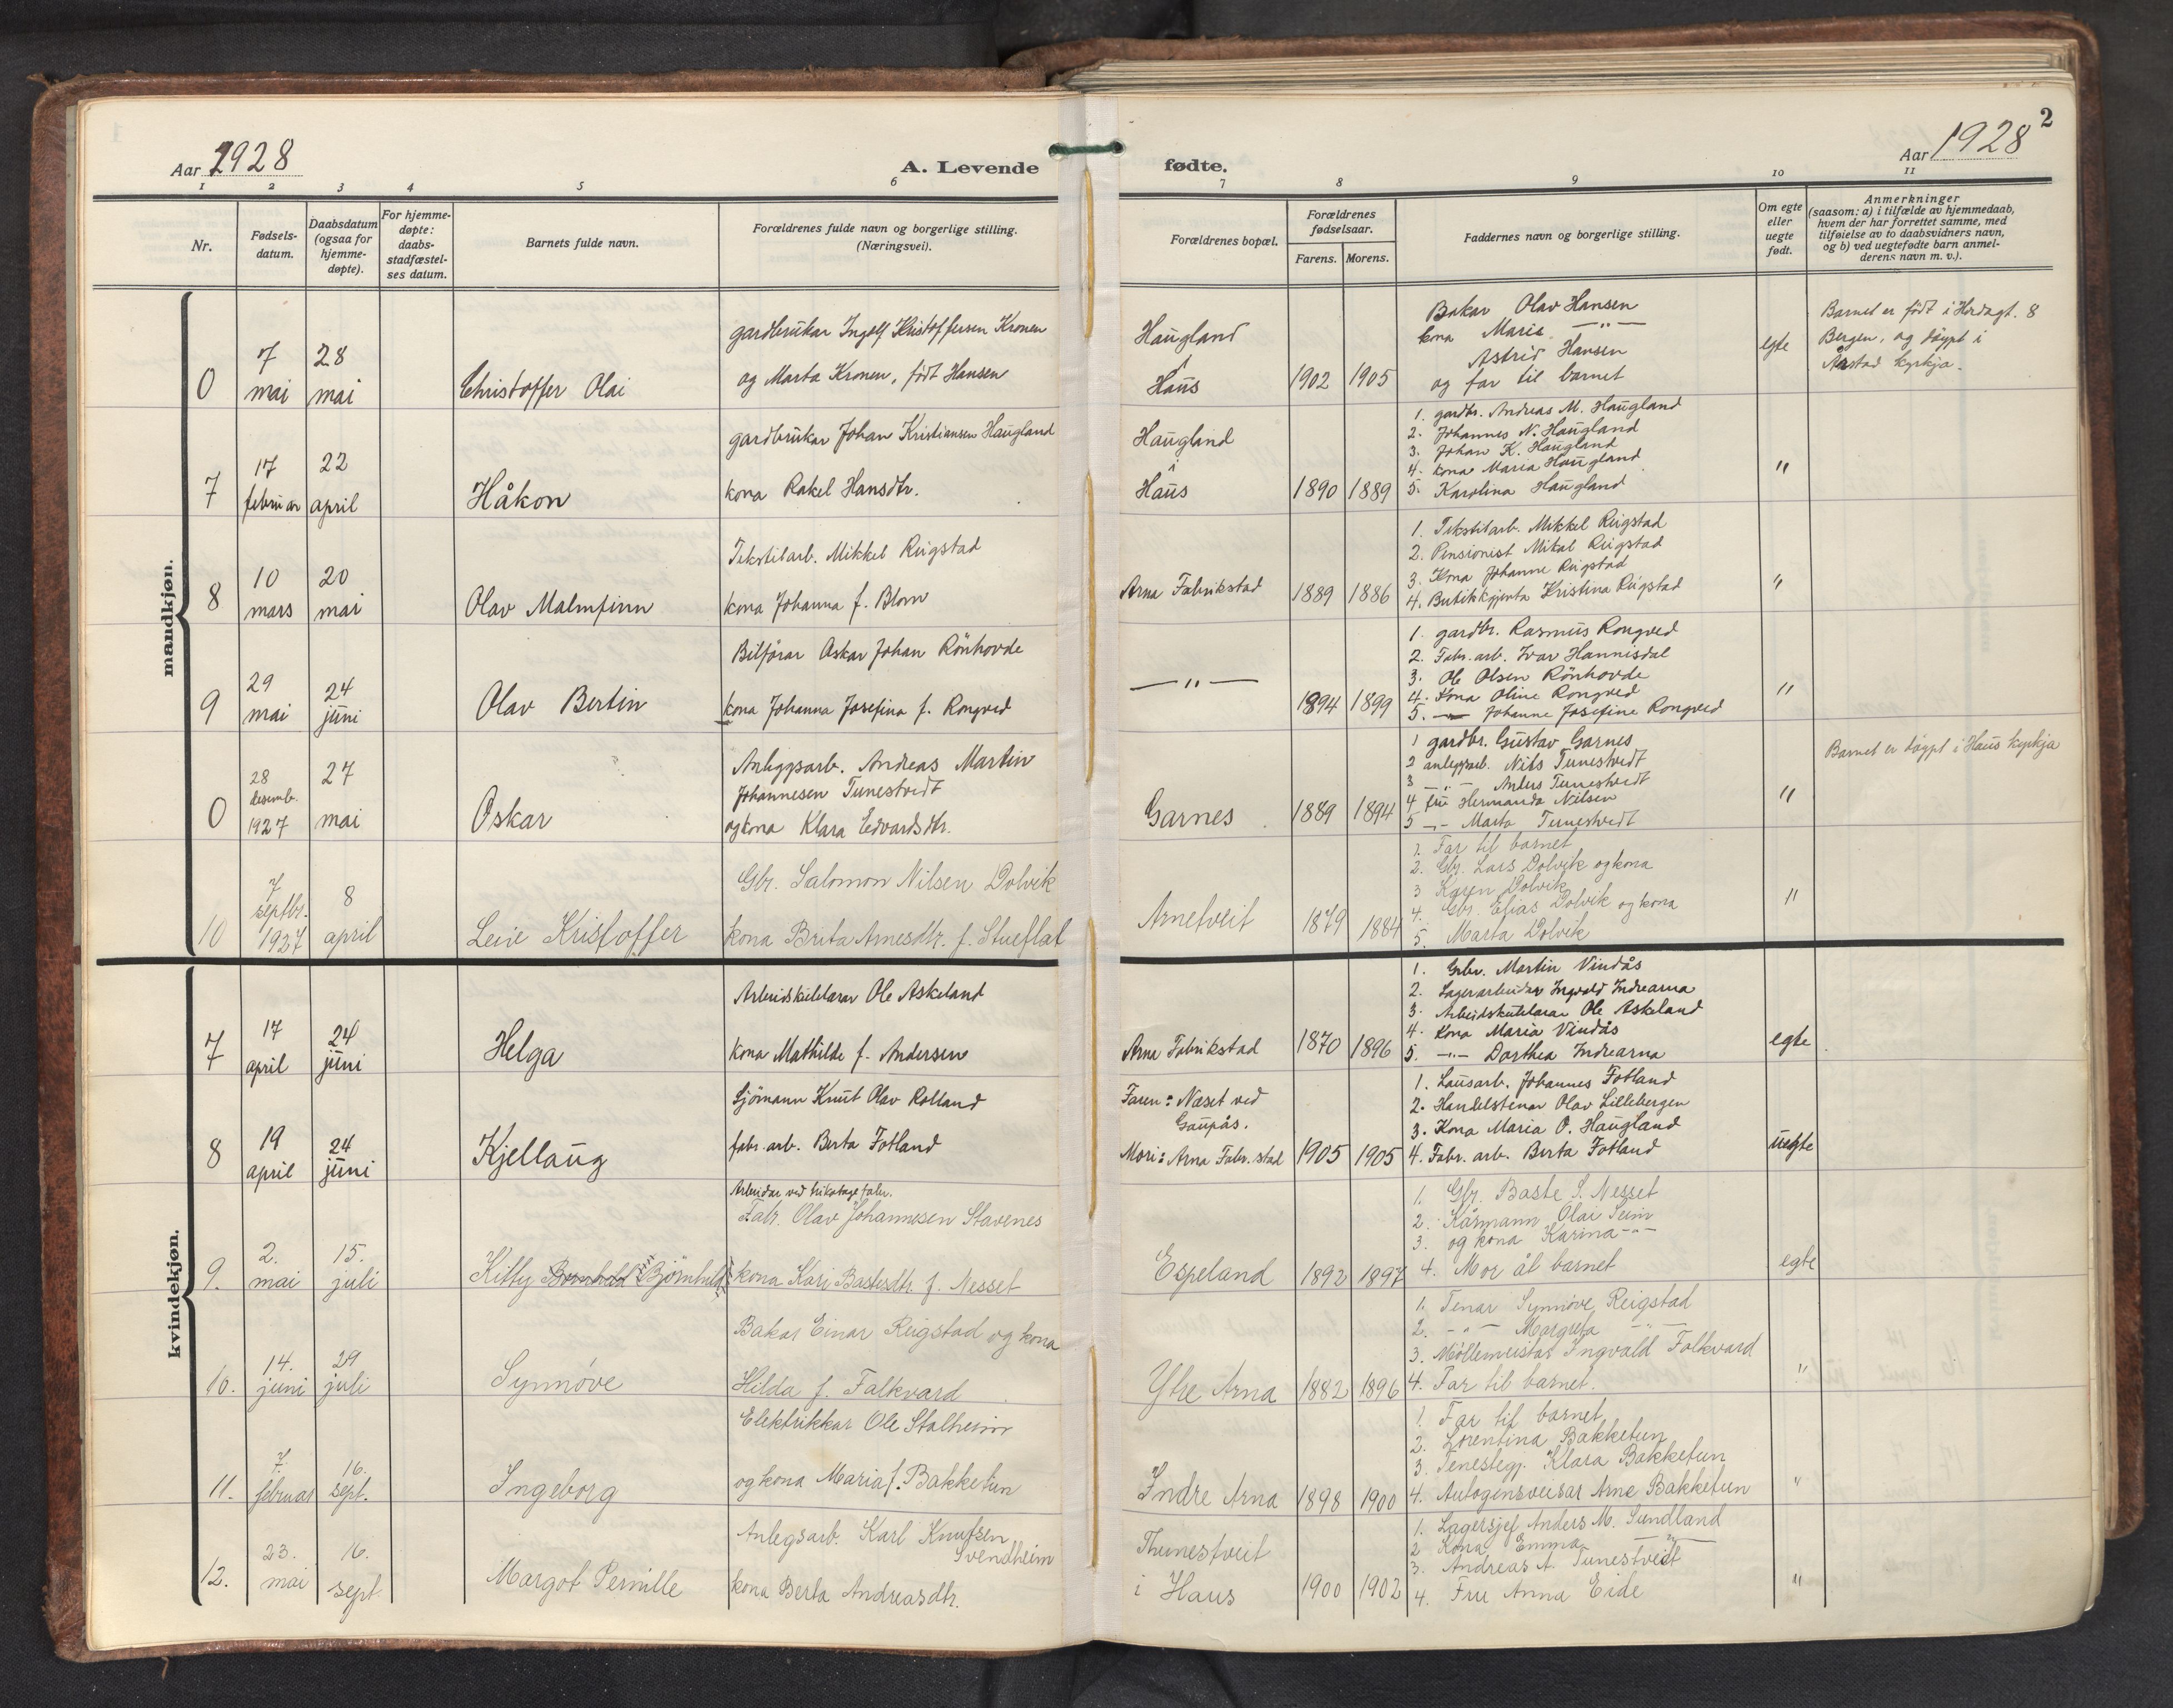 Aar 1928
A. Levende
1 2 3 4 5 6
Nr.
Fødsels-
datum.
Daabsdatum
(ogsaa for
hjemme-
døpte).
For hjemme-
døpte:
daabs-
stadfæstel-
ses datum.
Barnets fulde navn.
Forældrenes fulde navn og borgerlige stilling.
(Næringsvei).
2
Aar 1928
fødte.
7 8 9 10 11
Forældrenes bopæl.
Forældrenes
fødselsaar.
Farens. Morens.
Faddernes navn og borgerlige stilling.
Om egte
eller
uegte
født.
Anmerkninger
(saasom: a) i tilfælde av hjemmedaab,
hvem der har forrettet samme, med
tilføielse av to daabsvidners navn,
og b) ved uegtefødte barn anmel-
derens navn m. v.).
mandkjøn.
0
7
mai
28
mai
Christoffer Olai
gardbrukar Ingolf Kristoffersen Kronen
og Marta Kronen, født Hansen
Haugland
i
Haus
1902 1905
Bakar Olav Hansen
kona Maria —"—
Astrid Hansen
og far til barnet
egte
Barnet er født i Hordagt. 8
Bergen, og døypt i
Årstad kyrkja.
7
17
februar
22
april
Håkon
gardbrukar Johan Kristiansen Haugland
kona Rakel Hansdtr.
Haugland
i
Haus
1890 1889
1. gardbr. Andreas M. Haugland
2. Johannes N. Haugland
3. Johan K. Haugland
4. kona Maria Haugland
5. Karolina Haugland
"
8
10
mars
20
mai
Olav Malmfinn
Tekstilarb. Mikkel Reigstad
kona Johanna f. Blom
Arna Fabrikstad
1889 1886
1. Tekstilarb. Mikkel Reigstad
2. Pensionist Mikal Reigstad
3. Kona Johanne Reigstad
4. Butikkgjenta Kristina Reigstad
"
9
29
mai
24
juni
Olav Bertin
Bilførar Oskar Johan Rönhovde
kona Johanna Josefina f. Rongved
—"—
1894 1899
1. gardbr. Rasmus Rongved
2. Fabr. arb. Ivar Hannisdal
3. Ole Olsen Rönhovde
4. Kona Oline Rongved
5. —"— Johanne Josefine Rongved
"
0
28
desemb.
1927
27
mai
Oskar
Anleggsarb. Andreas Martin
Johannesen Tunestvedt
og kona Klara Edvardsdtr.
Garnes
1889 1894
1 gardbr. Gustav Garnes
2 anleggsarb. Nils Tunestvedt
3 —"— Anders Tunestvedt
4 fru Hermanda Nilsen
5 —"— Marta Tunestvedt
"
Barnet er døypt i Haus kyrkja
10
7
septbr.
1927
8
april
Leive Kristoffer
Gbr. Salomon Nilsen Dolvik
kona Brita Arnesdtr. f. Stueflat
Arnetveit
1879 1884
1. Far til barnet
2. Gbr. Lars Dolvik og kona
3 Karen Dolvik
4. Gbr. Elias Dolvik og kona
5. Marta Dolvik
"
kvindekjøn.
7
17
april
24
juni
Helga
Arbeidskutlarar Ole Askeland
kona Mathilde f. Andersen
Arna Fabrikstad
1870 1896
1. Gbr. Martin Vindås
2. Lagerarbeidar Ingvald Indrearna
3. Arbeidskutelarar Ole Askeland
4. Kona Maria Vindås
5. —"— Dorthea Indrearna
egte
8
19
april
24
juni
Kjellaug
Sjömann Knut Olav Rolland
fabr. arb. Berta Fotland
Faren: Næset ved
Gaupås.
Mori: Arna Fabr. stad
1905 1905
1. Lausarb. Johannes Fotland
2. Handelstenar Olav Lillebergen
3. Kona Maria O. Haugland
4. Fabr. arb. Berta Fotland
uegte
9.
2.
mai
15.
juli
Kitty Bornhild Bjørnhild
Arbeidar ved trikotagefabr.
Fabr. Olav Johannesen Stavenes
kona Kari Bastesdtr. f. Nesset
Espeland
1892 1897
1. Gbr. Baste S. Nesset
2. Kårmann Olai Seim
3. og kona Karina —"—
4. Mor åt barnet
egte
10.
14.
juni
29
juli
Synnöve
Bakar Einar Reigstad og kona
Hilda f. Falkvard
Ytre Arna
1882 1896
1. Tenar Synnöve Reigstad
2. —"— Margreta —"—
3. Möllemeistar Ingvald Falkvard
4. Far til barnet.
"
11.
7.
februar
16.
sept.
Ingeborg
Elektrikkar Ole Stalheim
og kona Maria f. Bakketun
Indre Arna
1898 1900
1. Far til barnet
2. Lorentina Bakketun
3. Tenestegj. Klara Bakketun
4. Autogensveisar Arne Bakketun
"
12.
23.
mai
16.
sept.
Margot Pernille
Anlegsarb. Karl Knutsen
Svendheim
kona Berta Andreasdtr.
Thunestveit
i Haus
1900 1902
1. Lagersjef Anders M. Sundland
2 Kona Emma —"—
3. Andreas A. Tunestveit
4. Fru Anna Eide
"